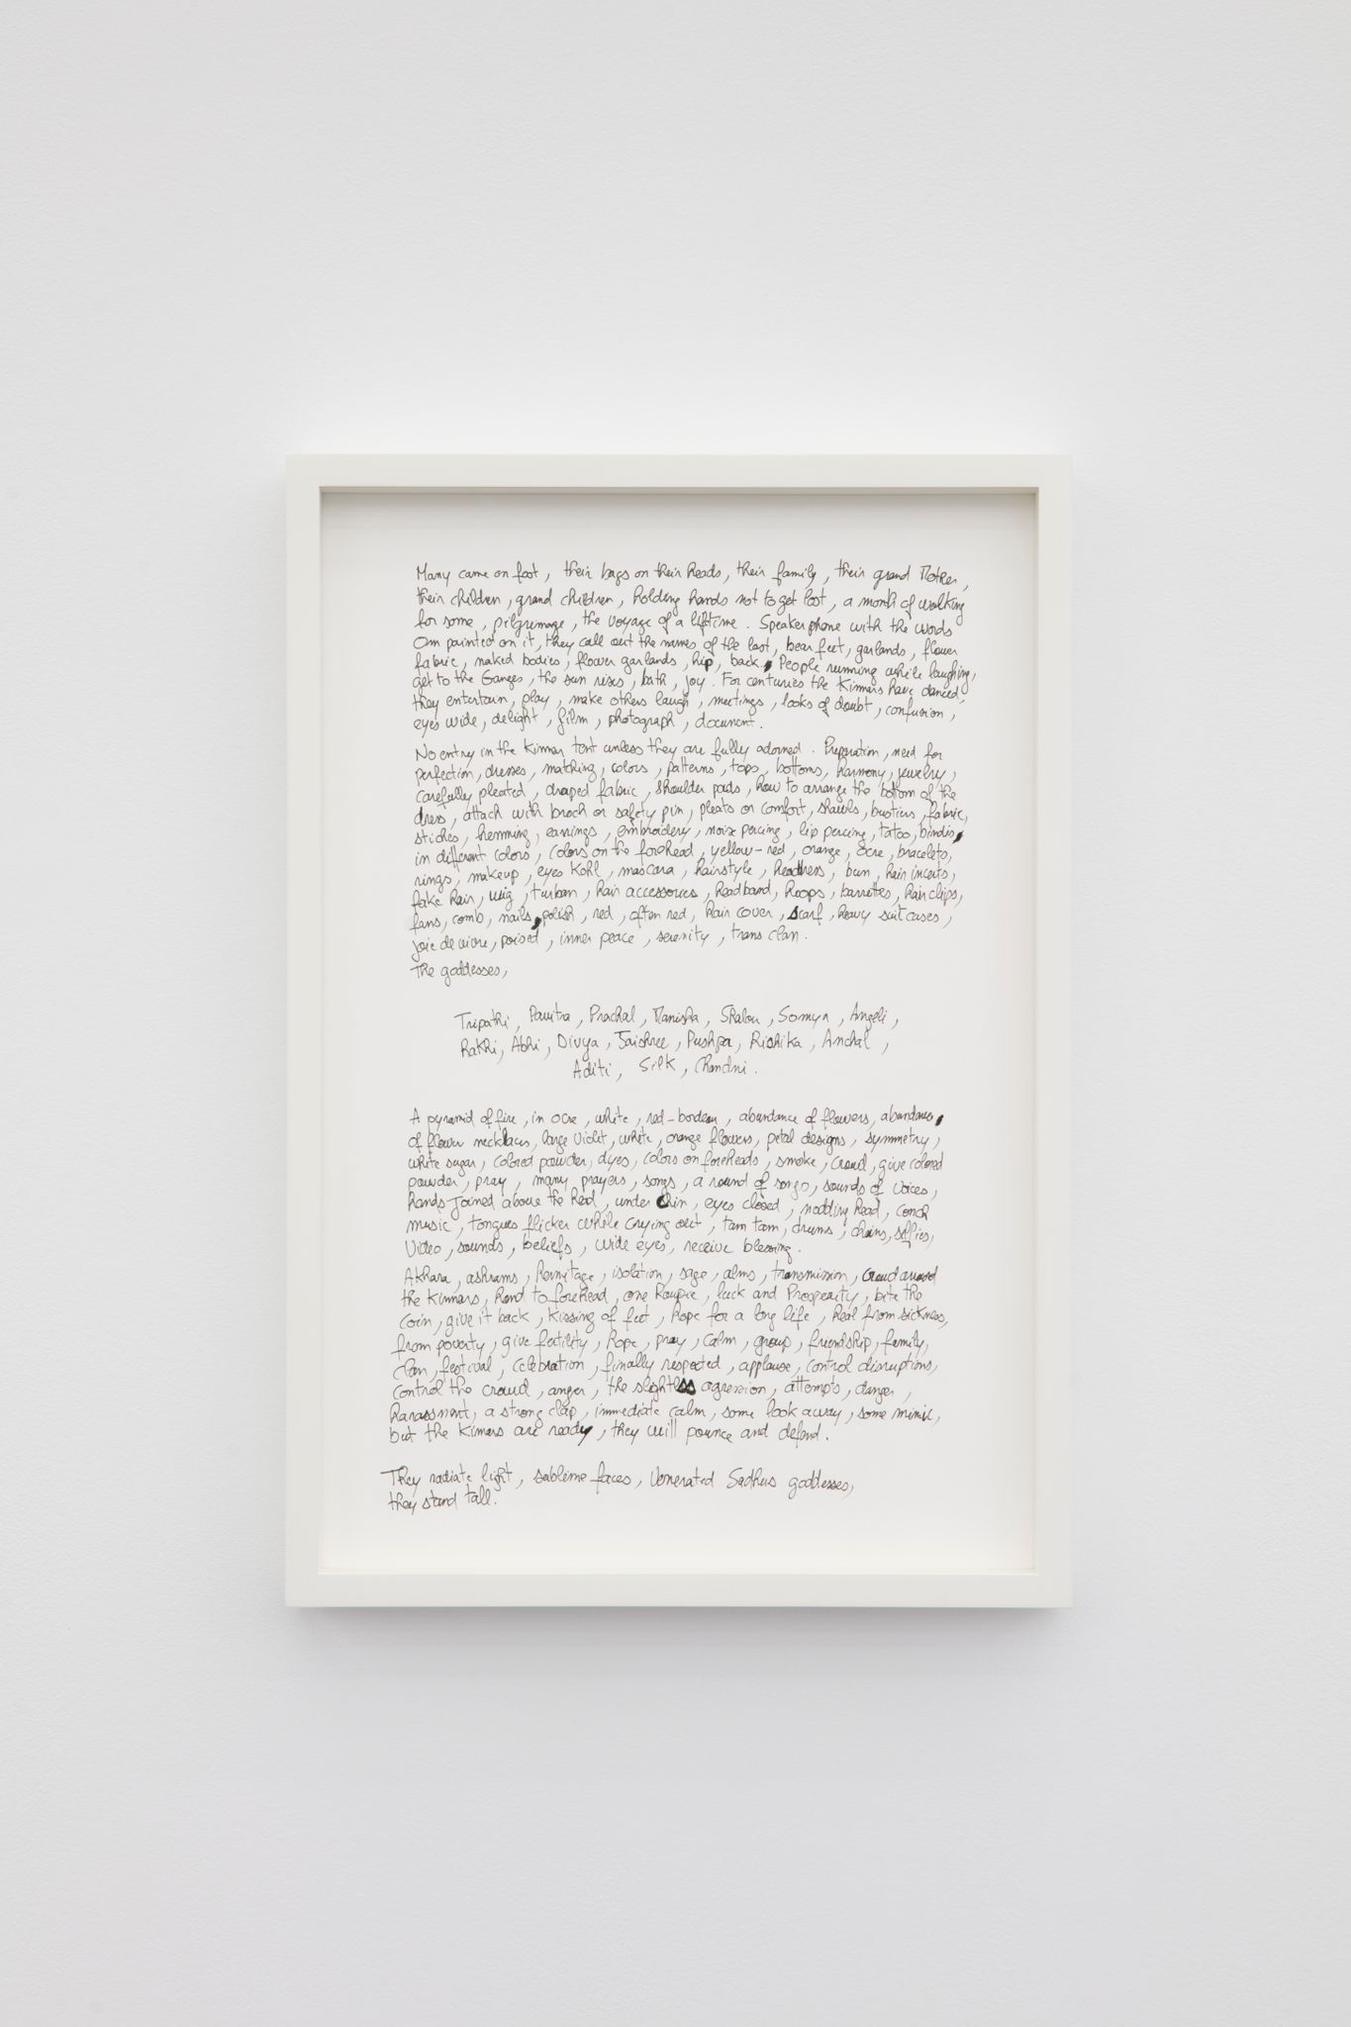 Many came on foot, their bags on their heads, their family, their grand Mother,
their children, grand children, holding hands not to get lost, a month of walking
for some, pilgrimage, the voyage of a lifetime. Speaker phone with the words
Om painted on it, they call out the names of the lost, bear feet, garlands, flower
fabric, naked bodies, flower garlands, hip, back, People running while laughing,
get to the Ganges, the sun rises, bath, joy. For centuries the Kinnars have danced,
they entertain, play, make others laugh, meetings, looks of doubt, confusion,
eyes wide, delight, film, photograph, document.
No entry in the Kinnar tent unless they are fully adorned. Preparation, need for
perfection, dresses, matching, colors, patterns, tops, bottoms, harmony, jewelry,
carefully pleated, draped fabric, shoulder pads, how to arrange the bottom of the
dress, attach with broch or safety pin, pleats or comfort, shawls, bustiers, fabric,
stiches, hemming, earrings, embroidery, noise percing, lip percing, tatoo, bindis,
in different colors, colors on the forehead, yellow-red, orange, ocre, bracelets,
rings, makeup, eyes Kohl, mascara, hairstyle, headress, bun, hair inserts,
fake hair, wig, turban, hair accessories, headband, hoops, barrettes, hair clips,
fans, comb, nails, polish, red, often red, hair cover, scarf, heavy suitcases,
joie de vivre, poised, inner peace, serenity, trans clan.
The goddesses,
Tripathi, Pavitra, Prachal, Manisha, Shalou, Somya, Angeli,
Rakhi, Abhi, Divya, Jaishree, Pushpa, Rishika, Anchal,
Aditi, Silk, Chandni.
A pyramid of fire, in ocre, white, red-bordeau, abundance of flowers, abundance,
of flower necklaces, large violet, white, orange flowers, petal designs, symmetry,
white sugar, colored powder, dyes, colors on foreheads, smoke, crowd, give colored
powder, pray, many prayers, songs, a round of songs, sounds of voices,
hands joined above the head, under chin, eyes closed, nodding head, conch
music, tongues flicker while crying out, tam tam, drums, chains, selfies,
video, sounds, beliefs, wide eyes, receive blessing.
Akhara, ashrams, hermitage, isolation, sage, alms, transmission, crowd around
the Kinnars, hand to forehead, one Roupie, luck and Prosperity, bite the
coin, give it back, kissing of feet, hope for a long life, heal from sickness,
from poverty, give fertility, hope, pray, calm, group, friendship, family,
clan, festival, celebration, finally respected, applause, control disruptions,
control the crowd, anger, the slightess agression, attempts, danger,
harassment, a strong clap, immediate calm, some look away, some mimic,
but the Kinnars are ready, they will pounce and defend.
They radiate light, sublime faces, venerated Sadhus goddesses,
they stand tall.